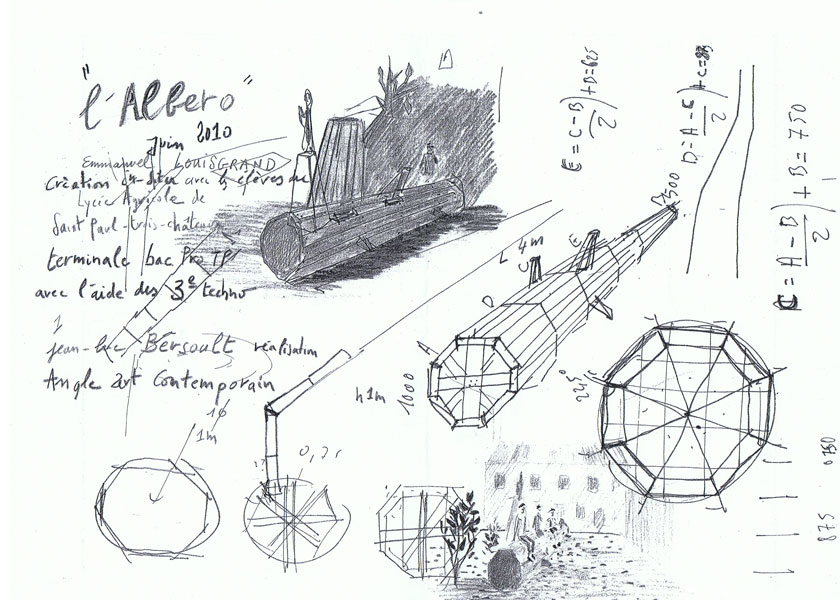 "l'Albero"
Juin 2010
Emmanuel LOUISGRAND
Création in-situ avec les élèves du
Lycée Agricole de
Saint Paul-trois-châteaux
terminale bac Pro TP
avec l'aide des 3e techno
1
jean-luc Bersoult réalisation
Angle art Contemporain
10
1m
L 4m
h 1m
A
1000
D
C
E
B
500
22,5°
(C - B / 2) + B = 625
D = (A - C / 2) + C = 875
C = (A - B / 2) + B = 750
0750
875